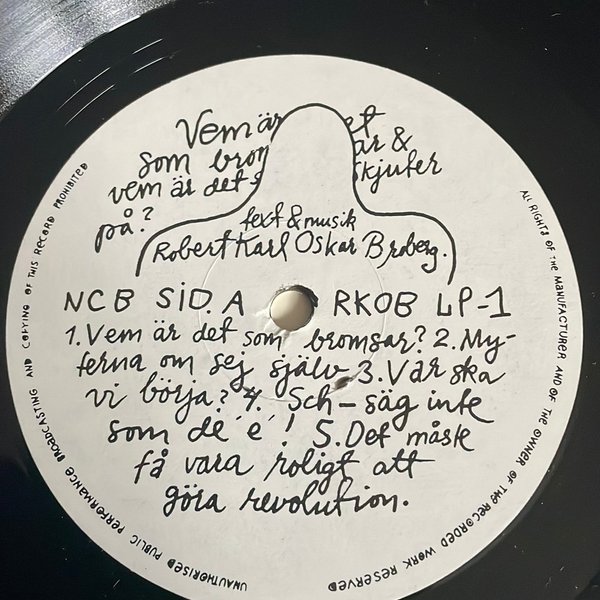 Vem är det
som brom ar &
vem är det s skjuter
på?
text & musik
Robert Karl Oskar Broberg.
NCB SID. A RKOB LP-1
1. Vem är det som bromsar? 2. My-
terna om sej själv 3. Var ska
vi börja? 4. Sch-säg inte
som de´ e´! 5. Det måste
få vara roligt att
göra revolution.
UNAUTHORISED PUBLIC PERFORMANCE BROADCASTING AND COPYING OF THIS RECORD PROHIBITED
ALL RIGHTS OF THE MANUFACTURER AND OF THE OWNER OF THE RECORDED WORK RESERVED